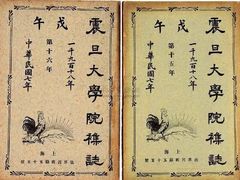 震旦大學院雜誌
戊午
一千九百十八年
第十六年
中華民國七年
上海
震旦大學院雜誌
戊午
一千九百十八年
第十五年
中華民國七年
上海